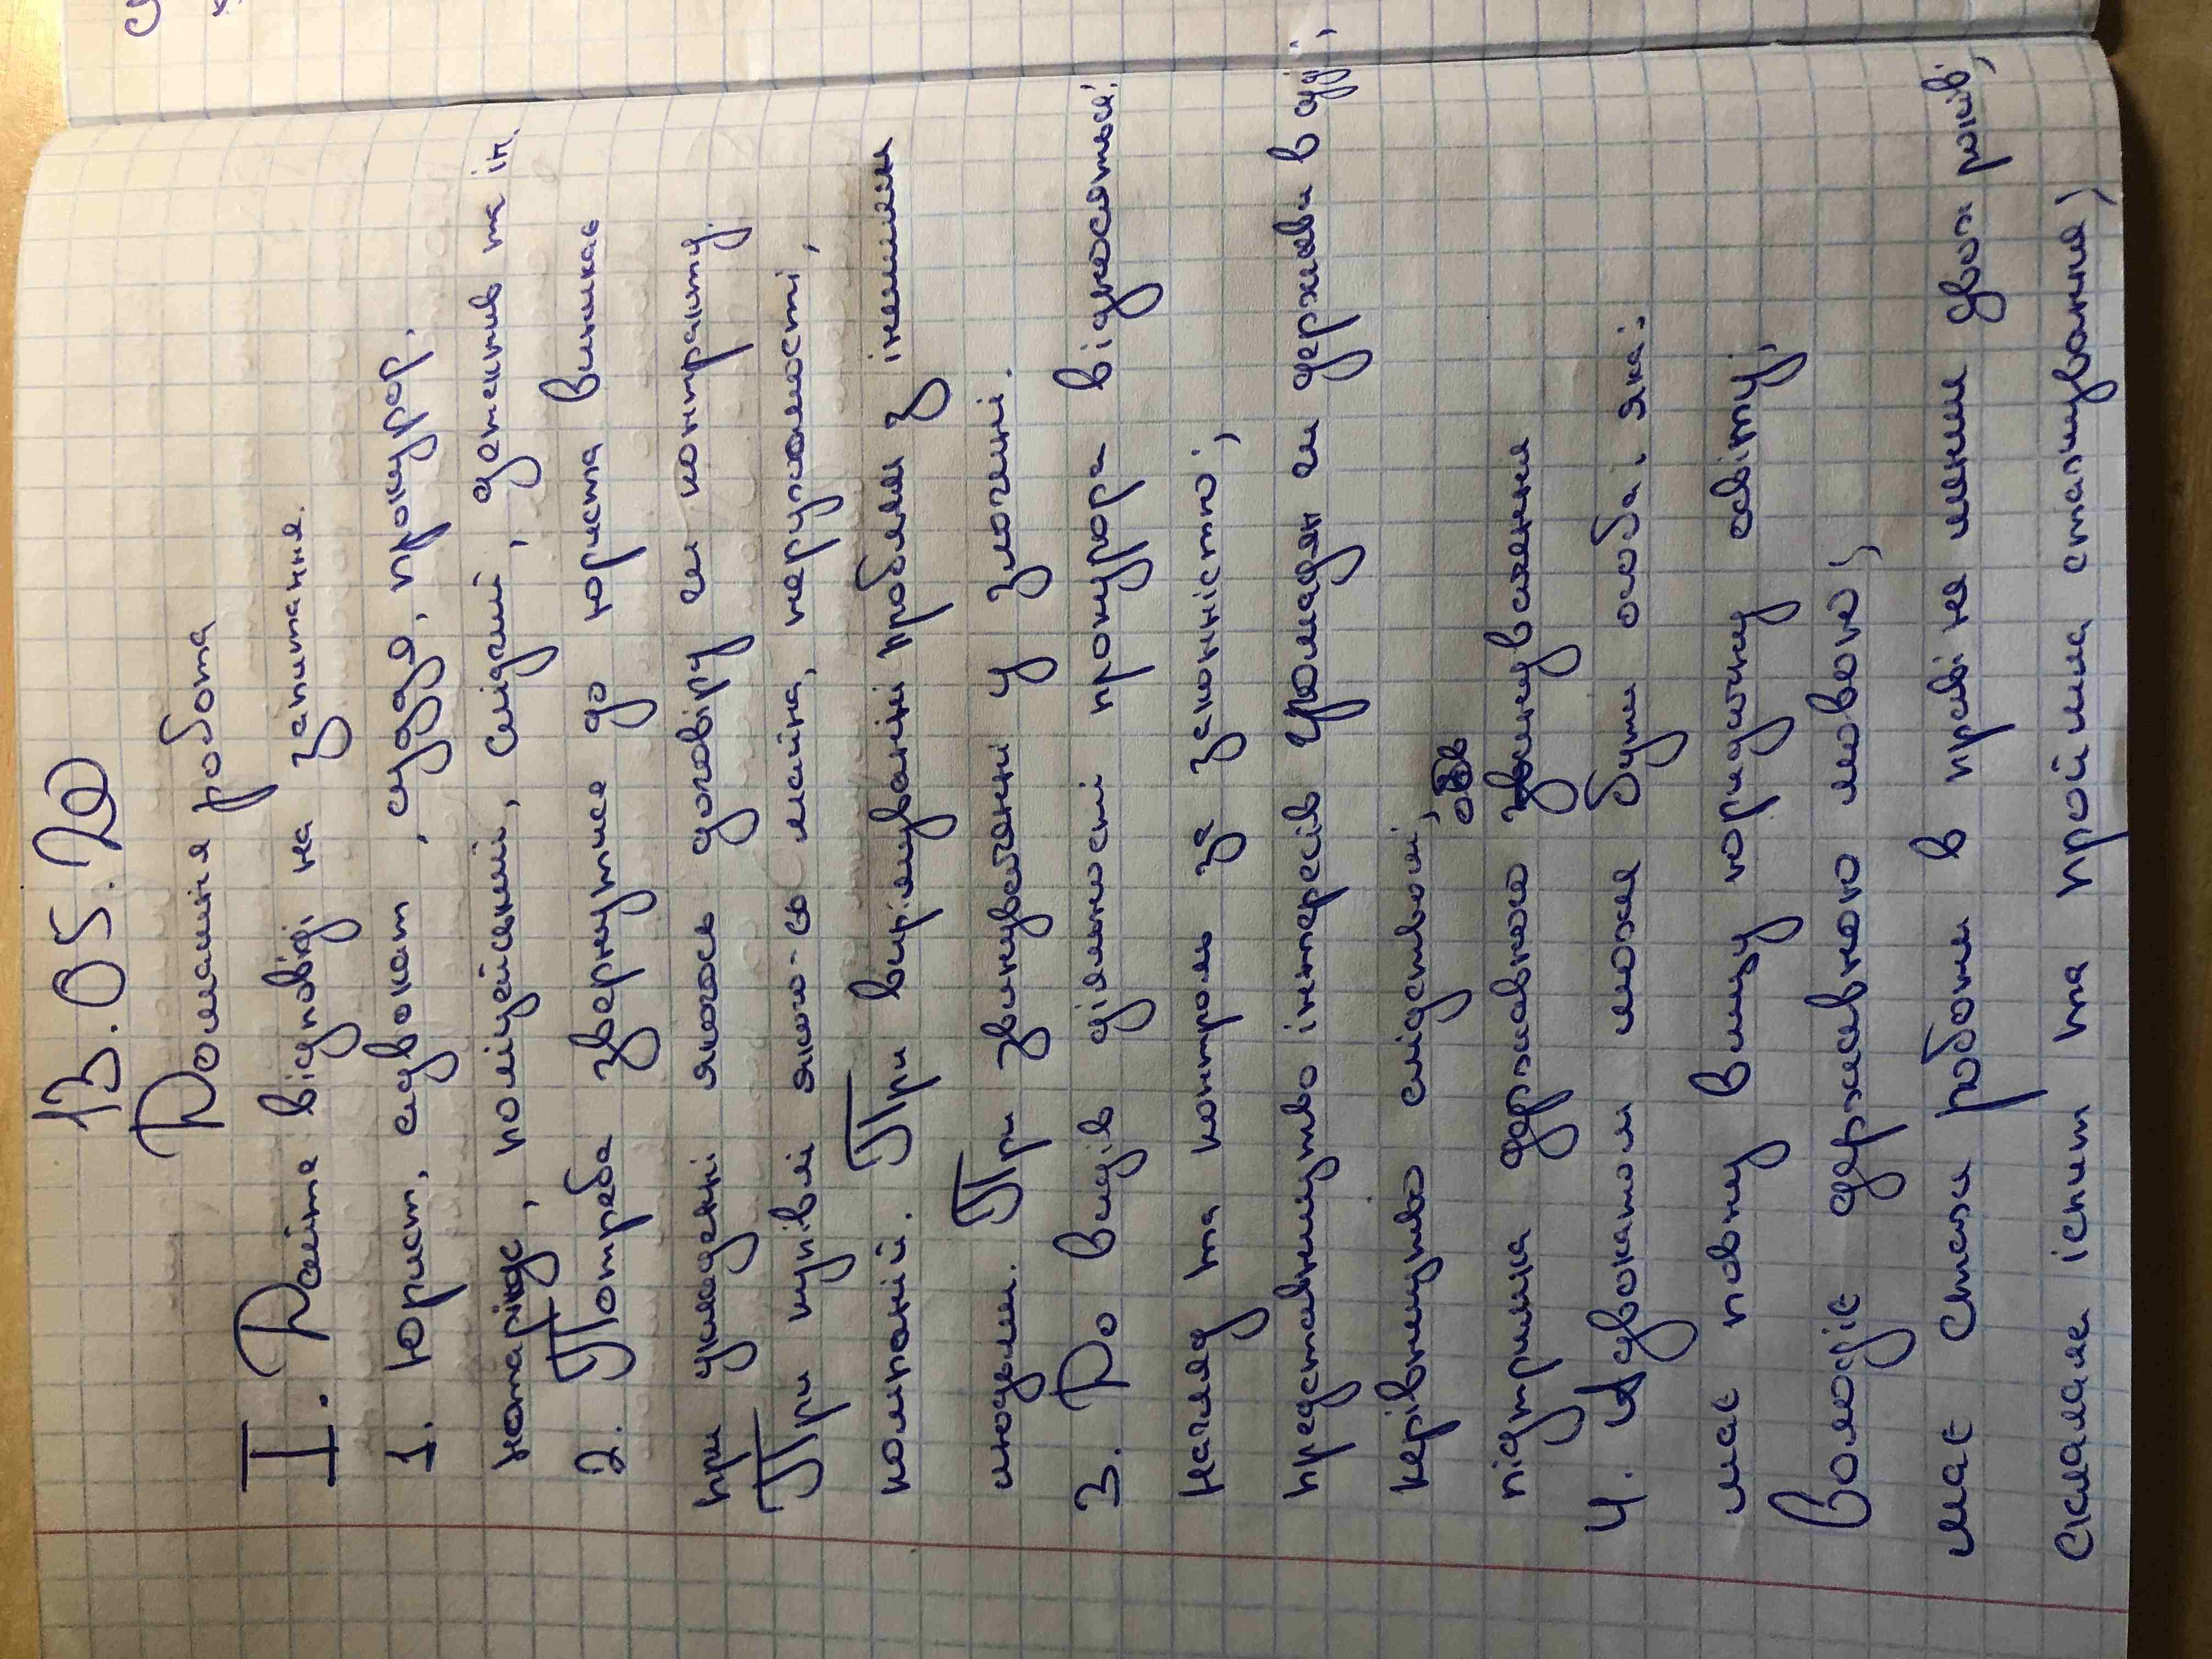 13.05.20
Домашня робота
I. Дайте відповіді на запитання.
1. Юрист, адвокат, суддя, прокурор,
нотаріус, поліцейський, слідчий, детектив та ін.
2. Потреба звернутися до юриста виникає
при укладенні якогось договіру чи контракту.
При купівлі якого-сь майна, нерухомості,
компаній. При вирішуванні проблем з іншими
людьми. При звинуваченні у злочині.
3. До видів діяльності прокурора відносяться:
нагляд та контроль за законністю;
представництво інтересів громадян чи держави в суді;
керівництво слідством;
підтримка державного звинувачення
4. Адвокатом може бути особа, яка:
має повну вищу юридичну освіту;
Володіє державною мовою;
має стаж роботи в праві не менш двох років;
Склала іспит та пройшла стажування;